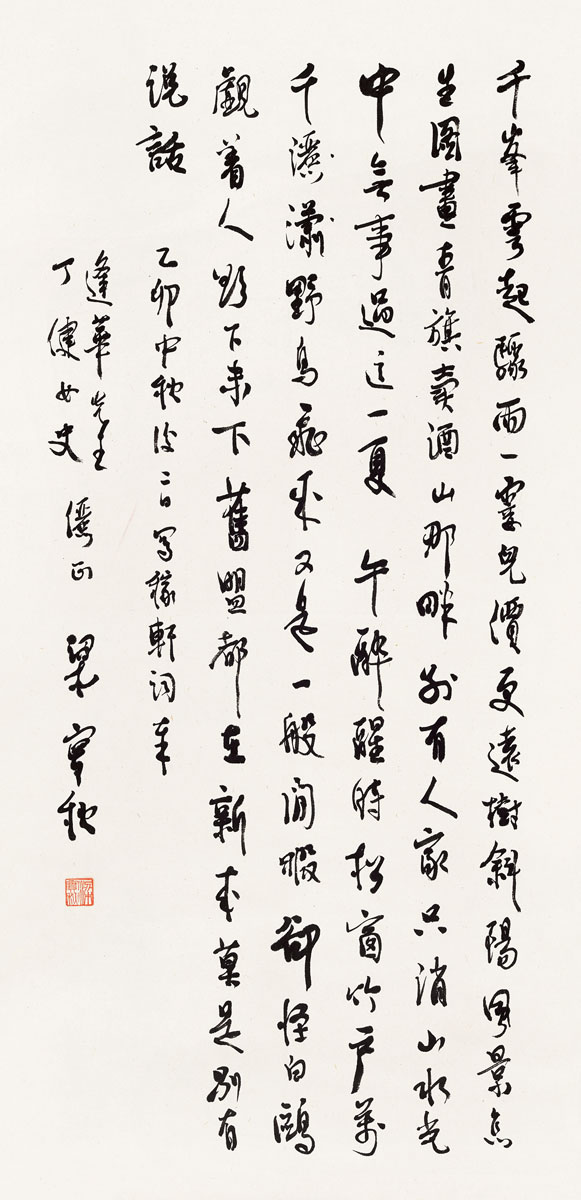 千峯雲起驟雨一霎兒價更遠樹斜陽風景怎
生圖畫青旗賣酒山那畔別有人家只消山水光
中無事過這一夏 午醉醒時松窗竹戶萬
千灑瀟野鳥飛來又是一般閒暇卻怪白鷗
覷着人欲下未下舊盟都在新來莫是別有
說話
乙卯中秋後二日寫稼軒詞奉
逢華先生
丁健女史 儷正 梁實秋